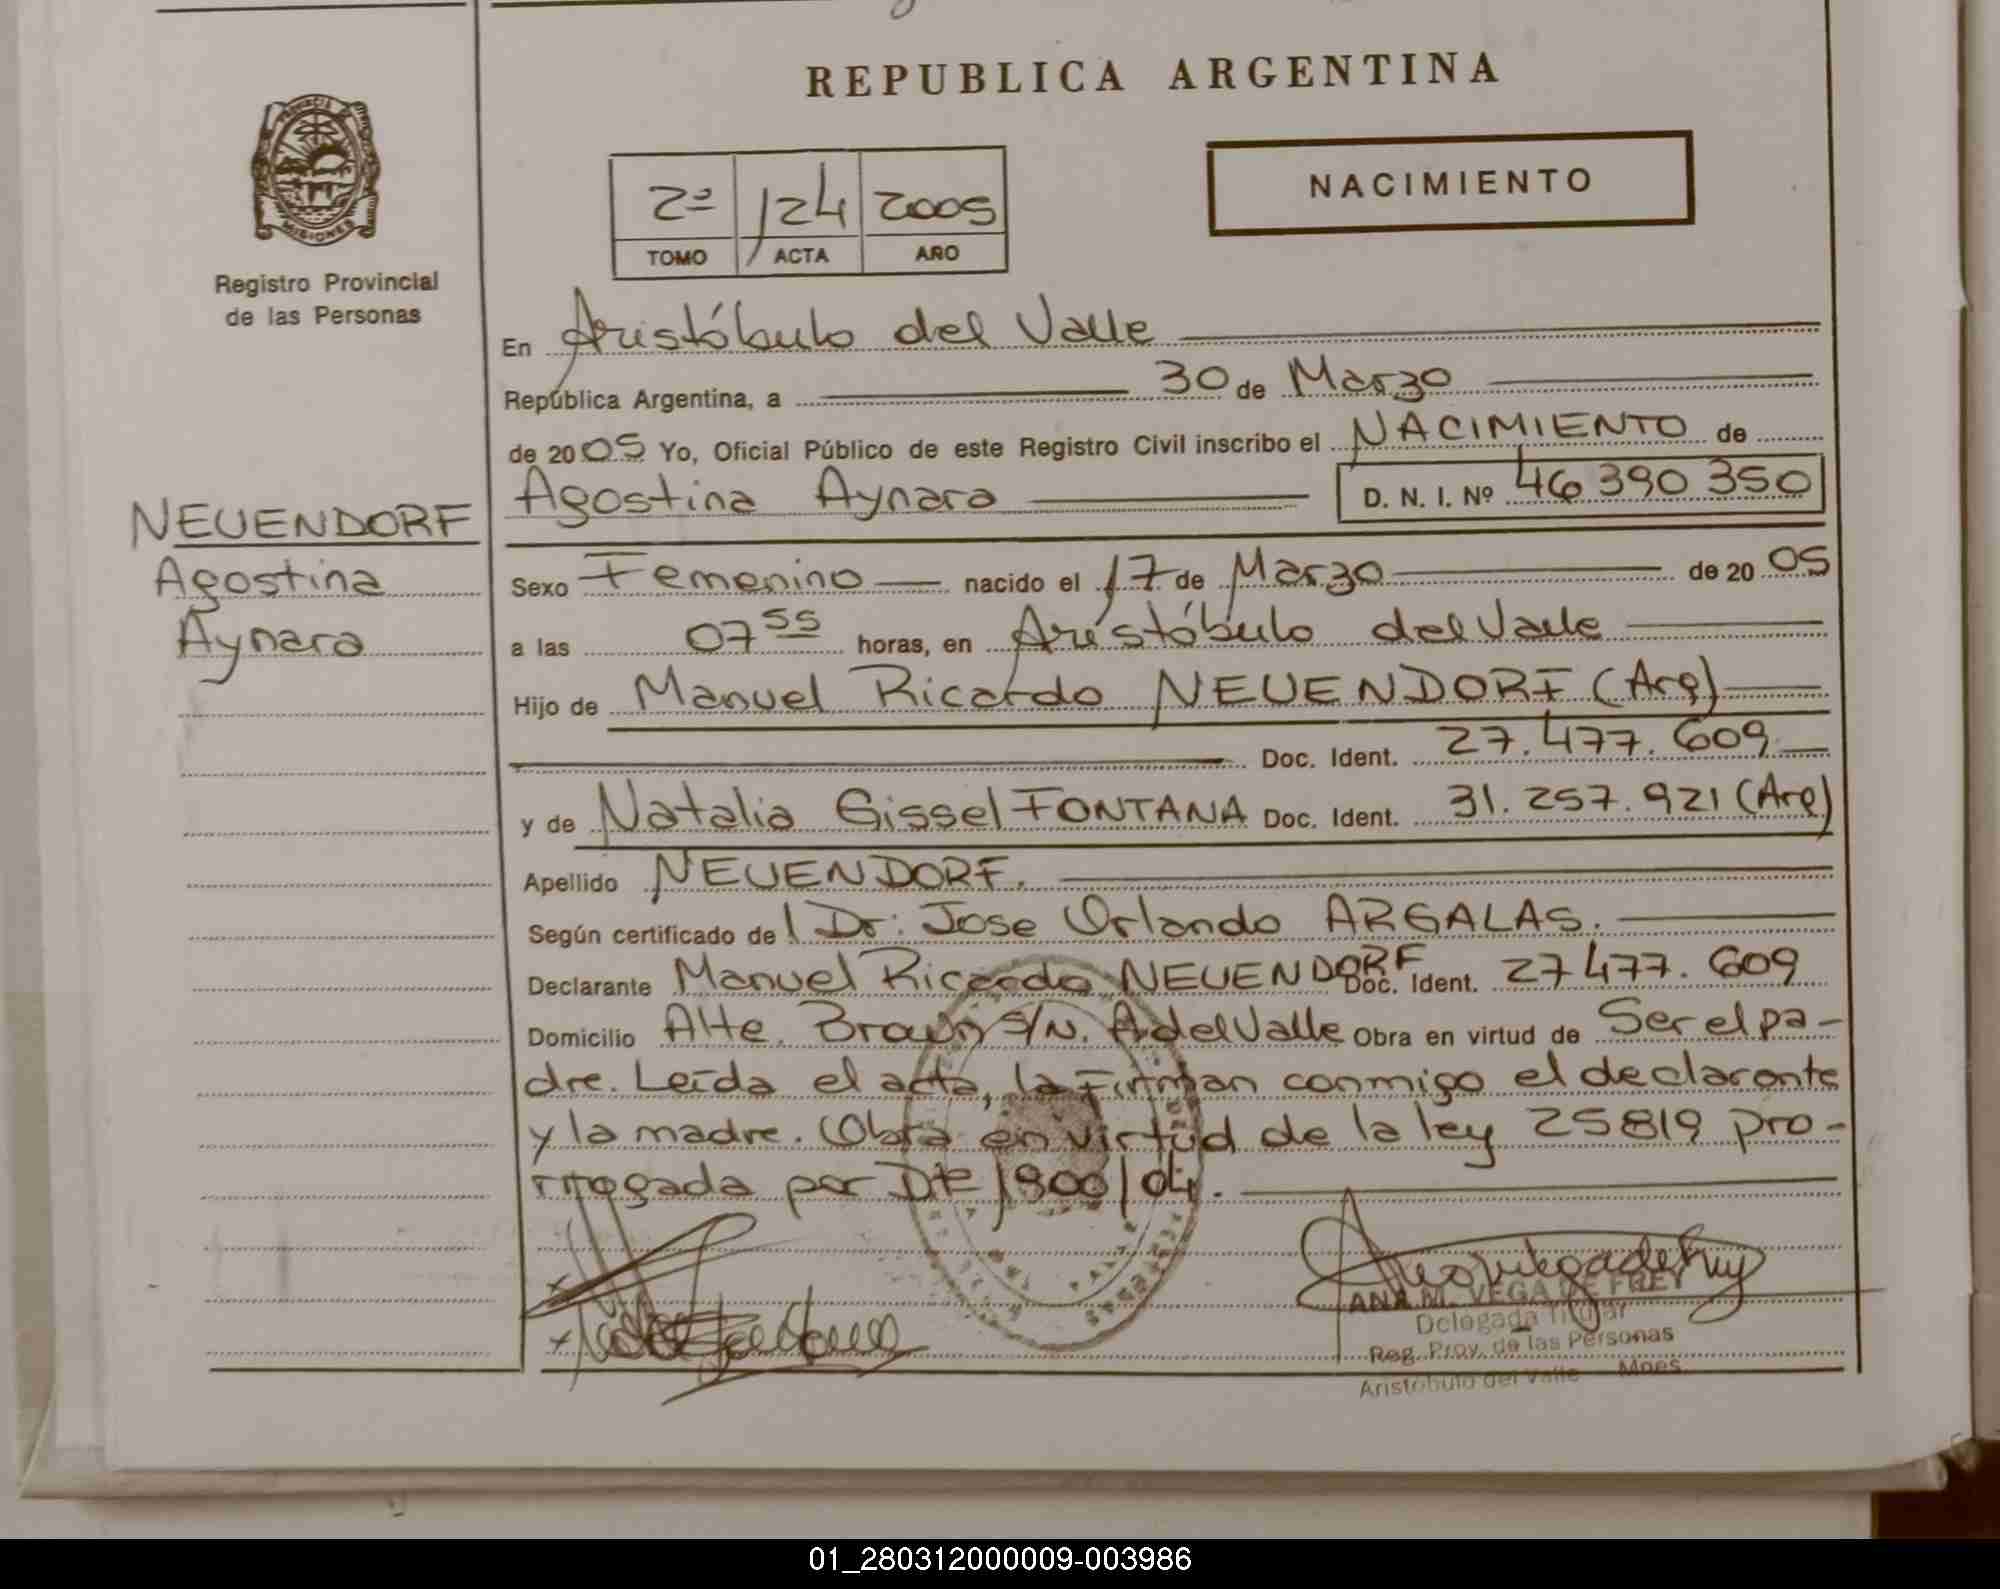 REPUBLICA ARGENTINA
PROVINCIA
MISIONES
Registro Provincial
de las Personas
2º 124 2005
TOMO ACTA AÑO
NACIMIENTO
En Aristóbulo del Valle
República Argentina, a 30 de Marzo
de 2005 Yo, Oficial Público de este Registro Civil inscribo el NACIMIENTO de
Agostina Aynara D. N. I. Nº 46 390 350
NEUENDORF
Agostina
Aynara
Sexo Femenino nacido el 17 de Marzo de 2005
a las 07 55 horas, en Aristóbulo del Valle
Hijo de Manuel Ricardo NEUENDORF (Arg)
Doc. Ident. 27.477.609
y de Natalia Gissel FONTANA Doc. Ident. 31.257.921 (Arg)
Apellido NEUENDORF.
Según certificado de l Dr. Jose Orlando ARGALAS.
Declarante Manuel Ricardo NEUENDORF Doc. Ident. 27477.609
Domicilio Alte. Brown S/N. A del Valle Obra en virtud de Ser el pa-
dre. Leída el acta, la firman conmigo el declarante
y la madre. Obra en virtud de la ley 25819 pro-
rrogada por Dte 1900/04.
ANA M. VEGA DE FREY
Delegada Titular
Reg. Prov. de las Personas
Aristóbulo del Valle Mnes.
01_280312000009-003986